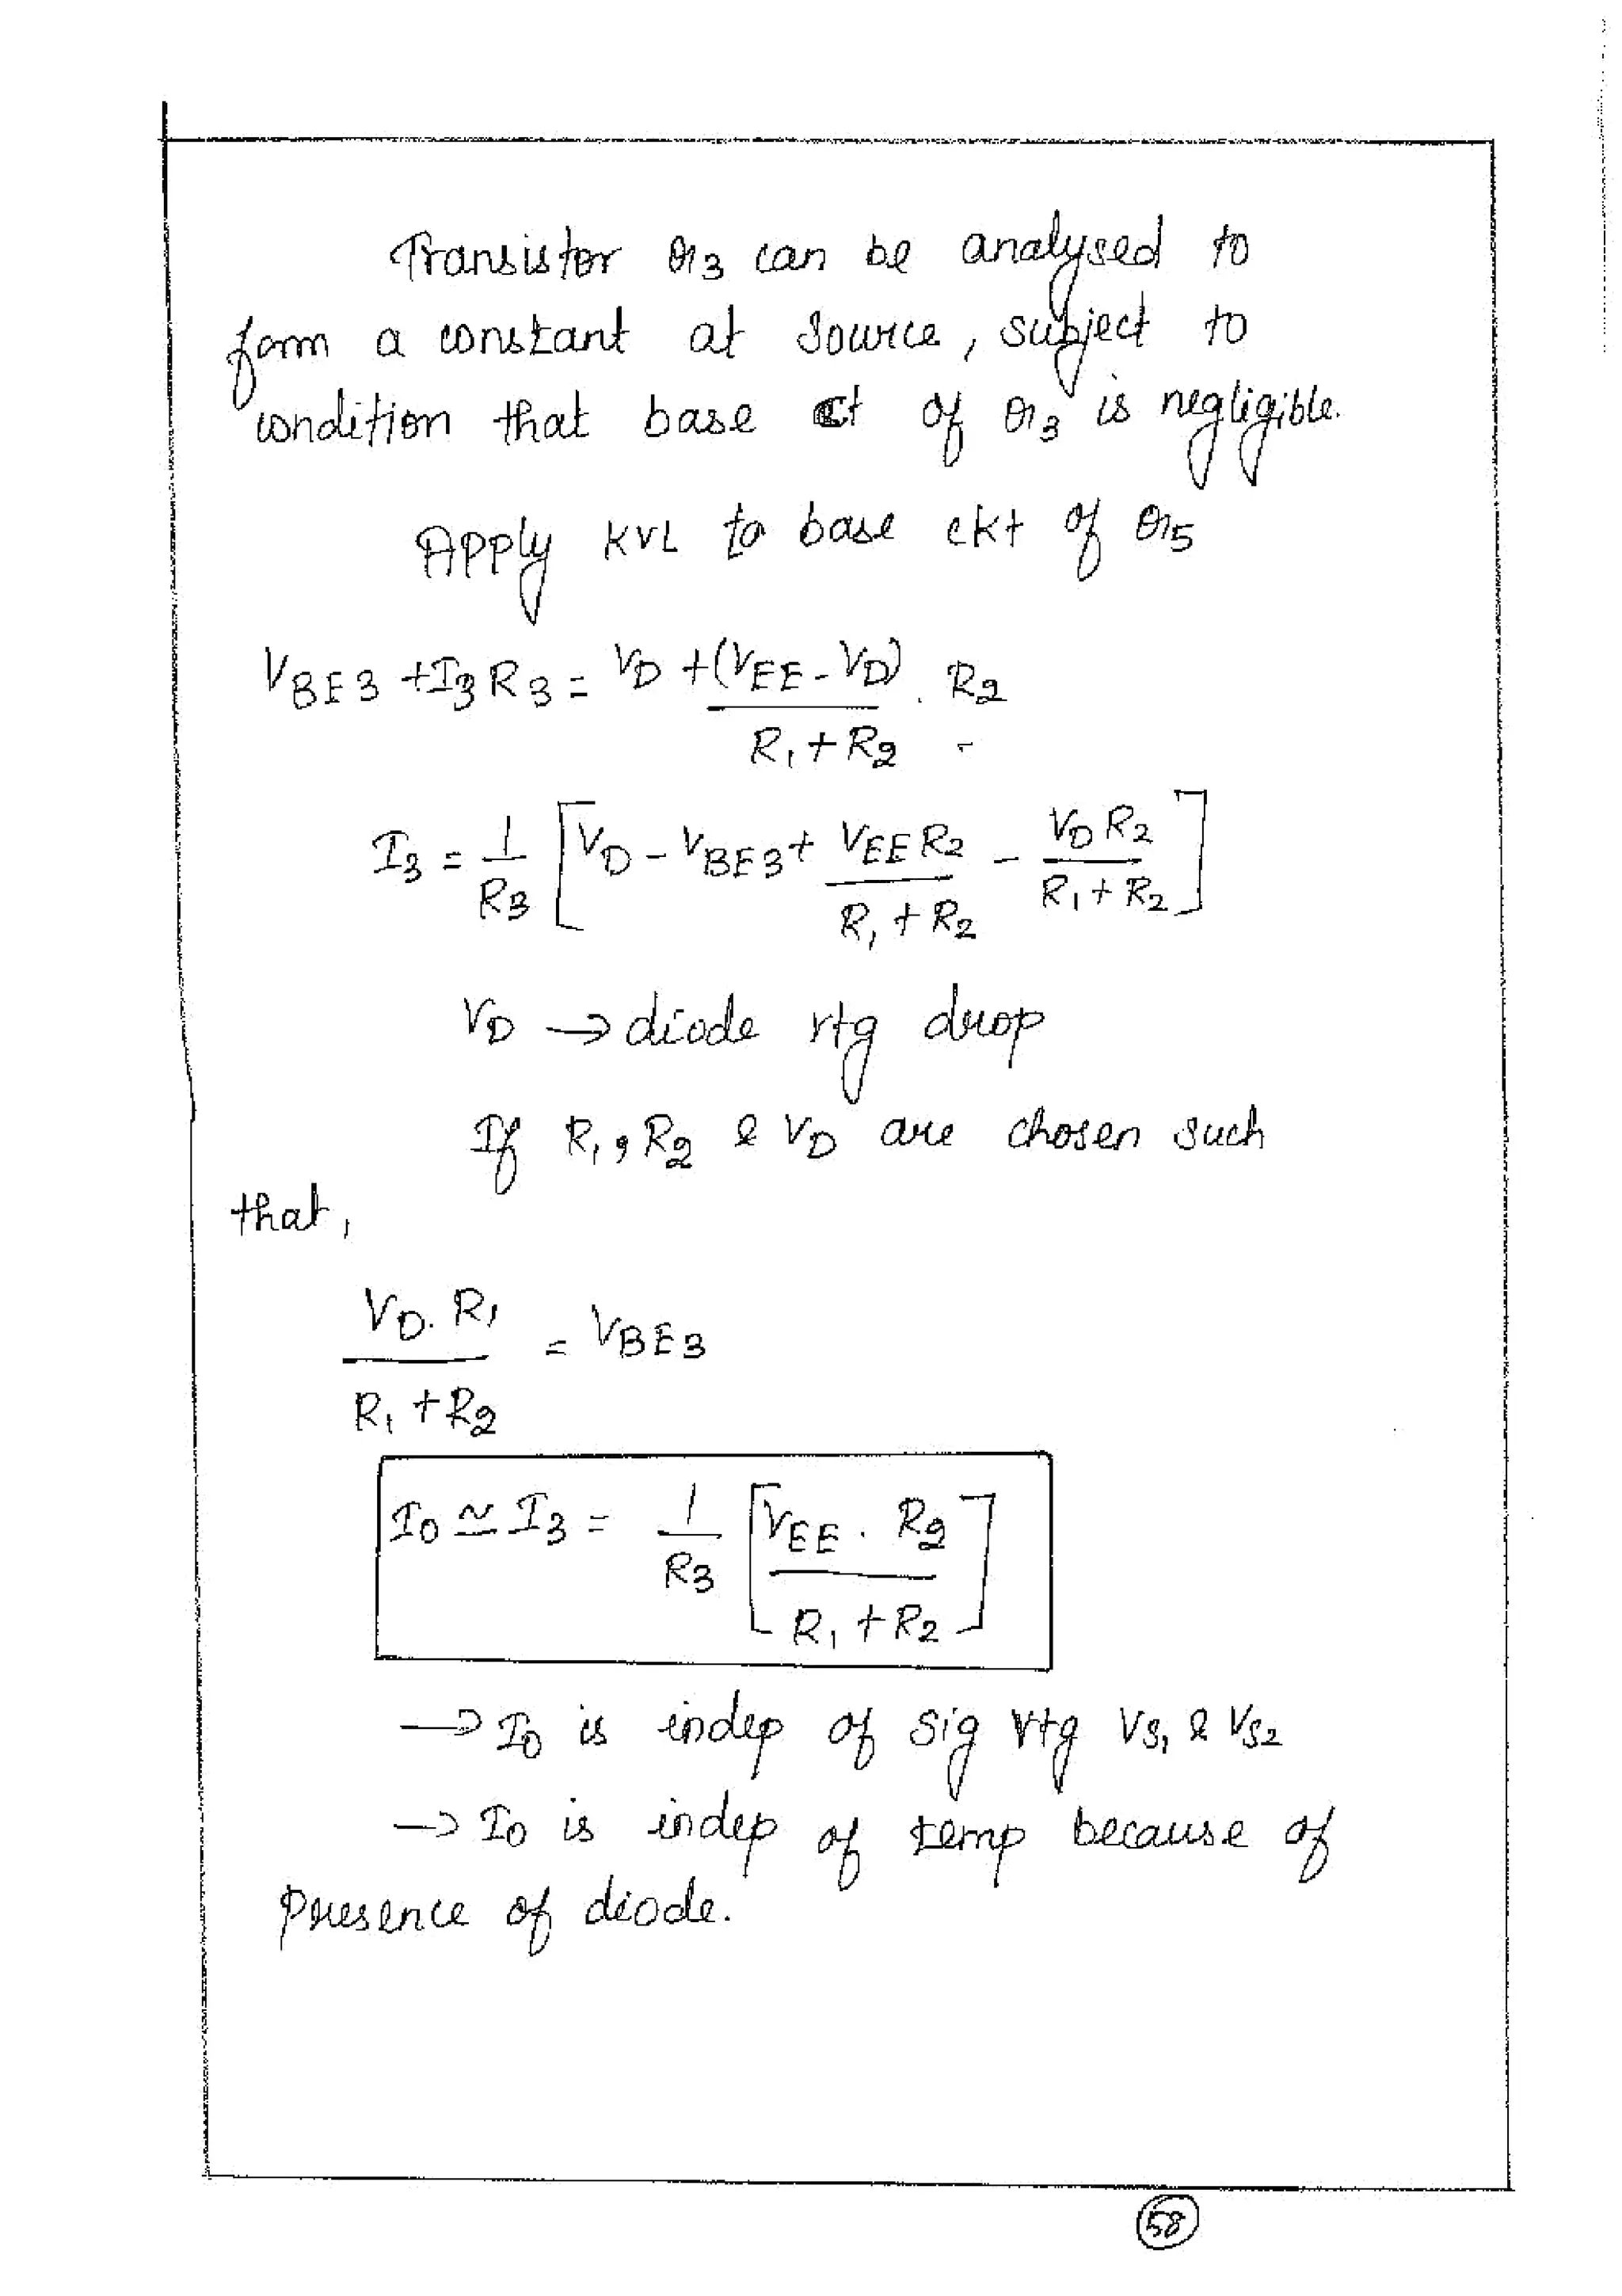 Transistor Q3 can be analysed to
form a constant ct source, subject to
condition that base ct of Q3 is negligible.
Apply KVL to base ckt of Q5
VBE3 + I3 R3 = VD + (VEE - VD) . R2
R1 + R2
I3 = 1/R3 [VD - VBE3 + VEE R2/R1 + R2 - VD R2/R1 + R2]
VD → diode vtg drop
If R1, R2 & VD are chosen such
that,
VD. R1 = VBE3
R1 + R2
I0 ≃ I3 = 1/R3 [VEE . R2/R1 + R2]
→ I0 is indep of sig vtg VS1 & VS2
→ I0 is indep of temp because of
presence of diode.
58